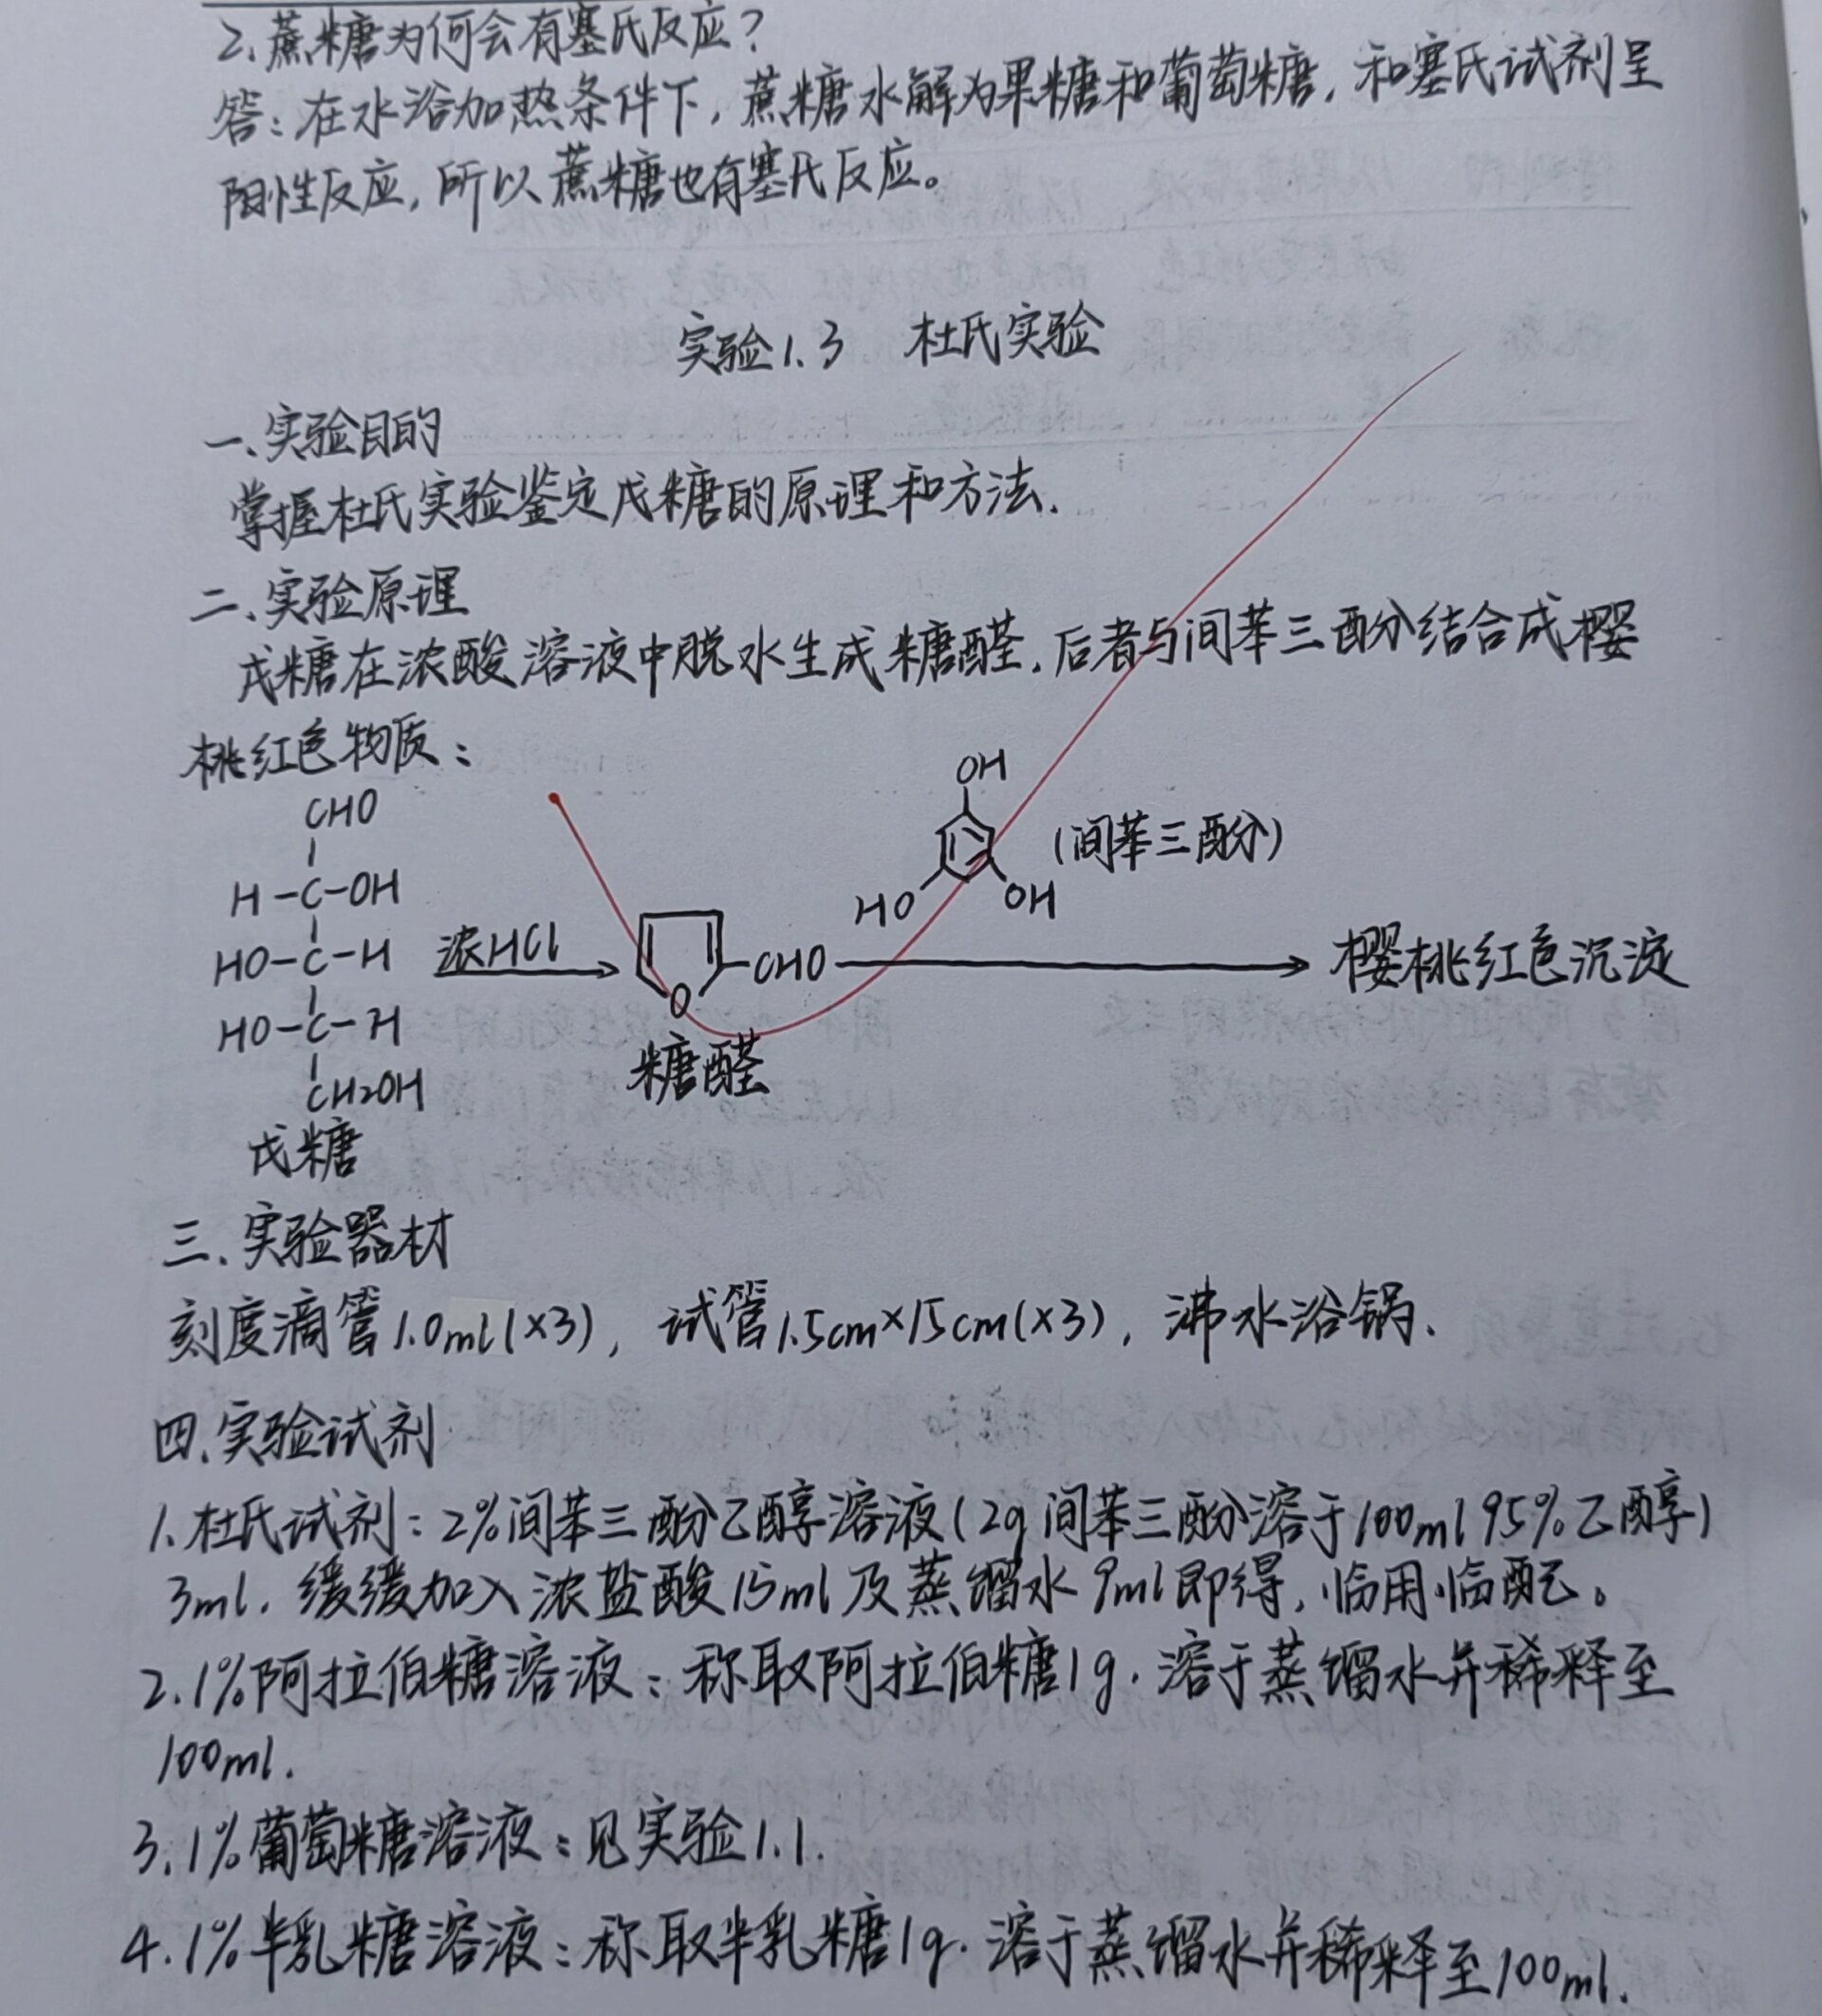 2.蔗糖为何会有塞氏反应?
答:在水浴加热条件下,蔗糖水解为果糖和葡萄糖,和塞氏试剂呈
阳性反应,所以蔗糖也有塞氏反应。
实验1.3 杜氏实验
一、实验目的
掌握杜氏实验鉴定戊糖的原理和方法.
二、实验原理
戊糖在浓酸溶液中脱水生成糖醛,后者与间苯三酚结合成樱
桃红色物质:
CHO
H-C-OH
HO-C-H
HO-C-H
CH2OH
戊糖
浓HCl
O
CHO
糖醛
OH
HO
OH
(间苯三酚)
樱桃红色沉淀
三、实验器材
刻度滴管1.0ml(×3), 试管1.5cm×15cm(×3), 沸水浴锅.
四.实验试剂
1.杜氏试剂:2%间苯三酚乙醇溶液(2g间苯三酚溶于100ml95%乙醇)
3ml.缓缓加入浓盐酸15ml及蒸馏水9ml即得,临用临配。
2.1%阿拉伯糖溶液:称取阿拉伯糖1g.溶于蒸馏水并稀释至
100ml.
3.1%葡萄糖溶液:见实验1.1.
4.1%半乳糖溶液:称取半乳糖1g.溶于蒸馏水并稀释至100ml.